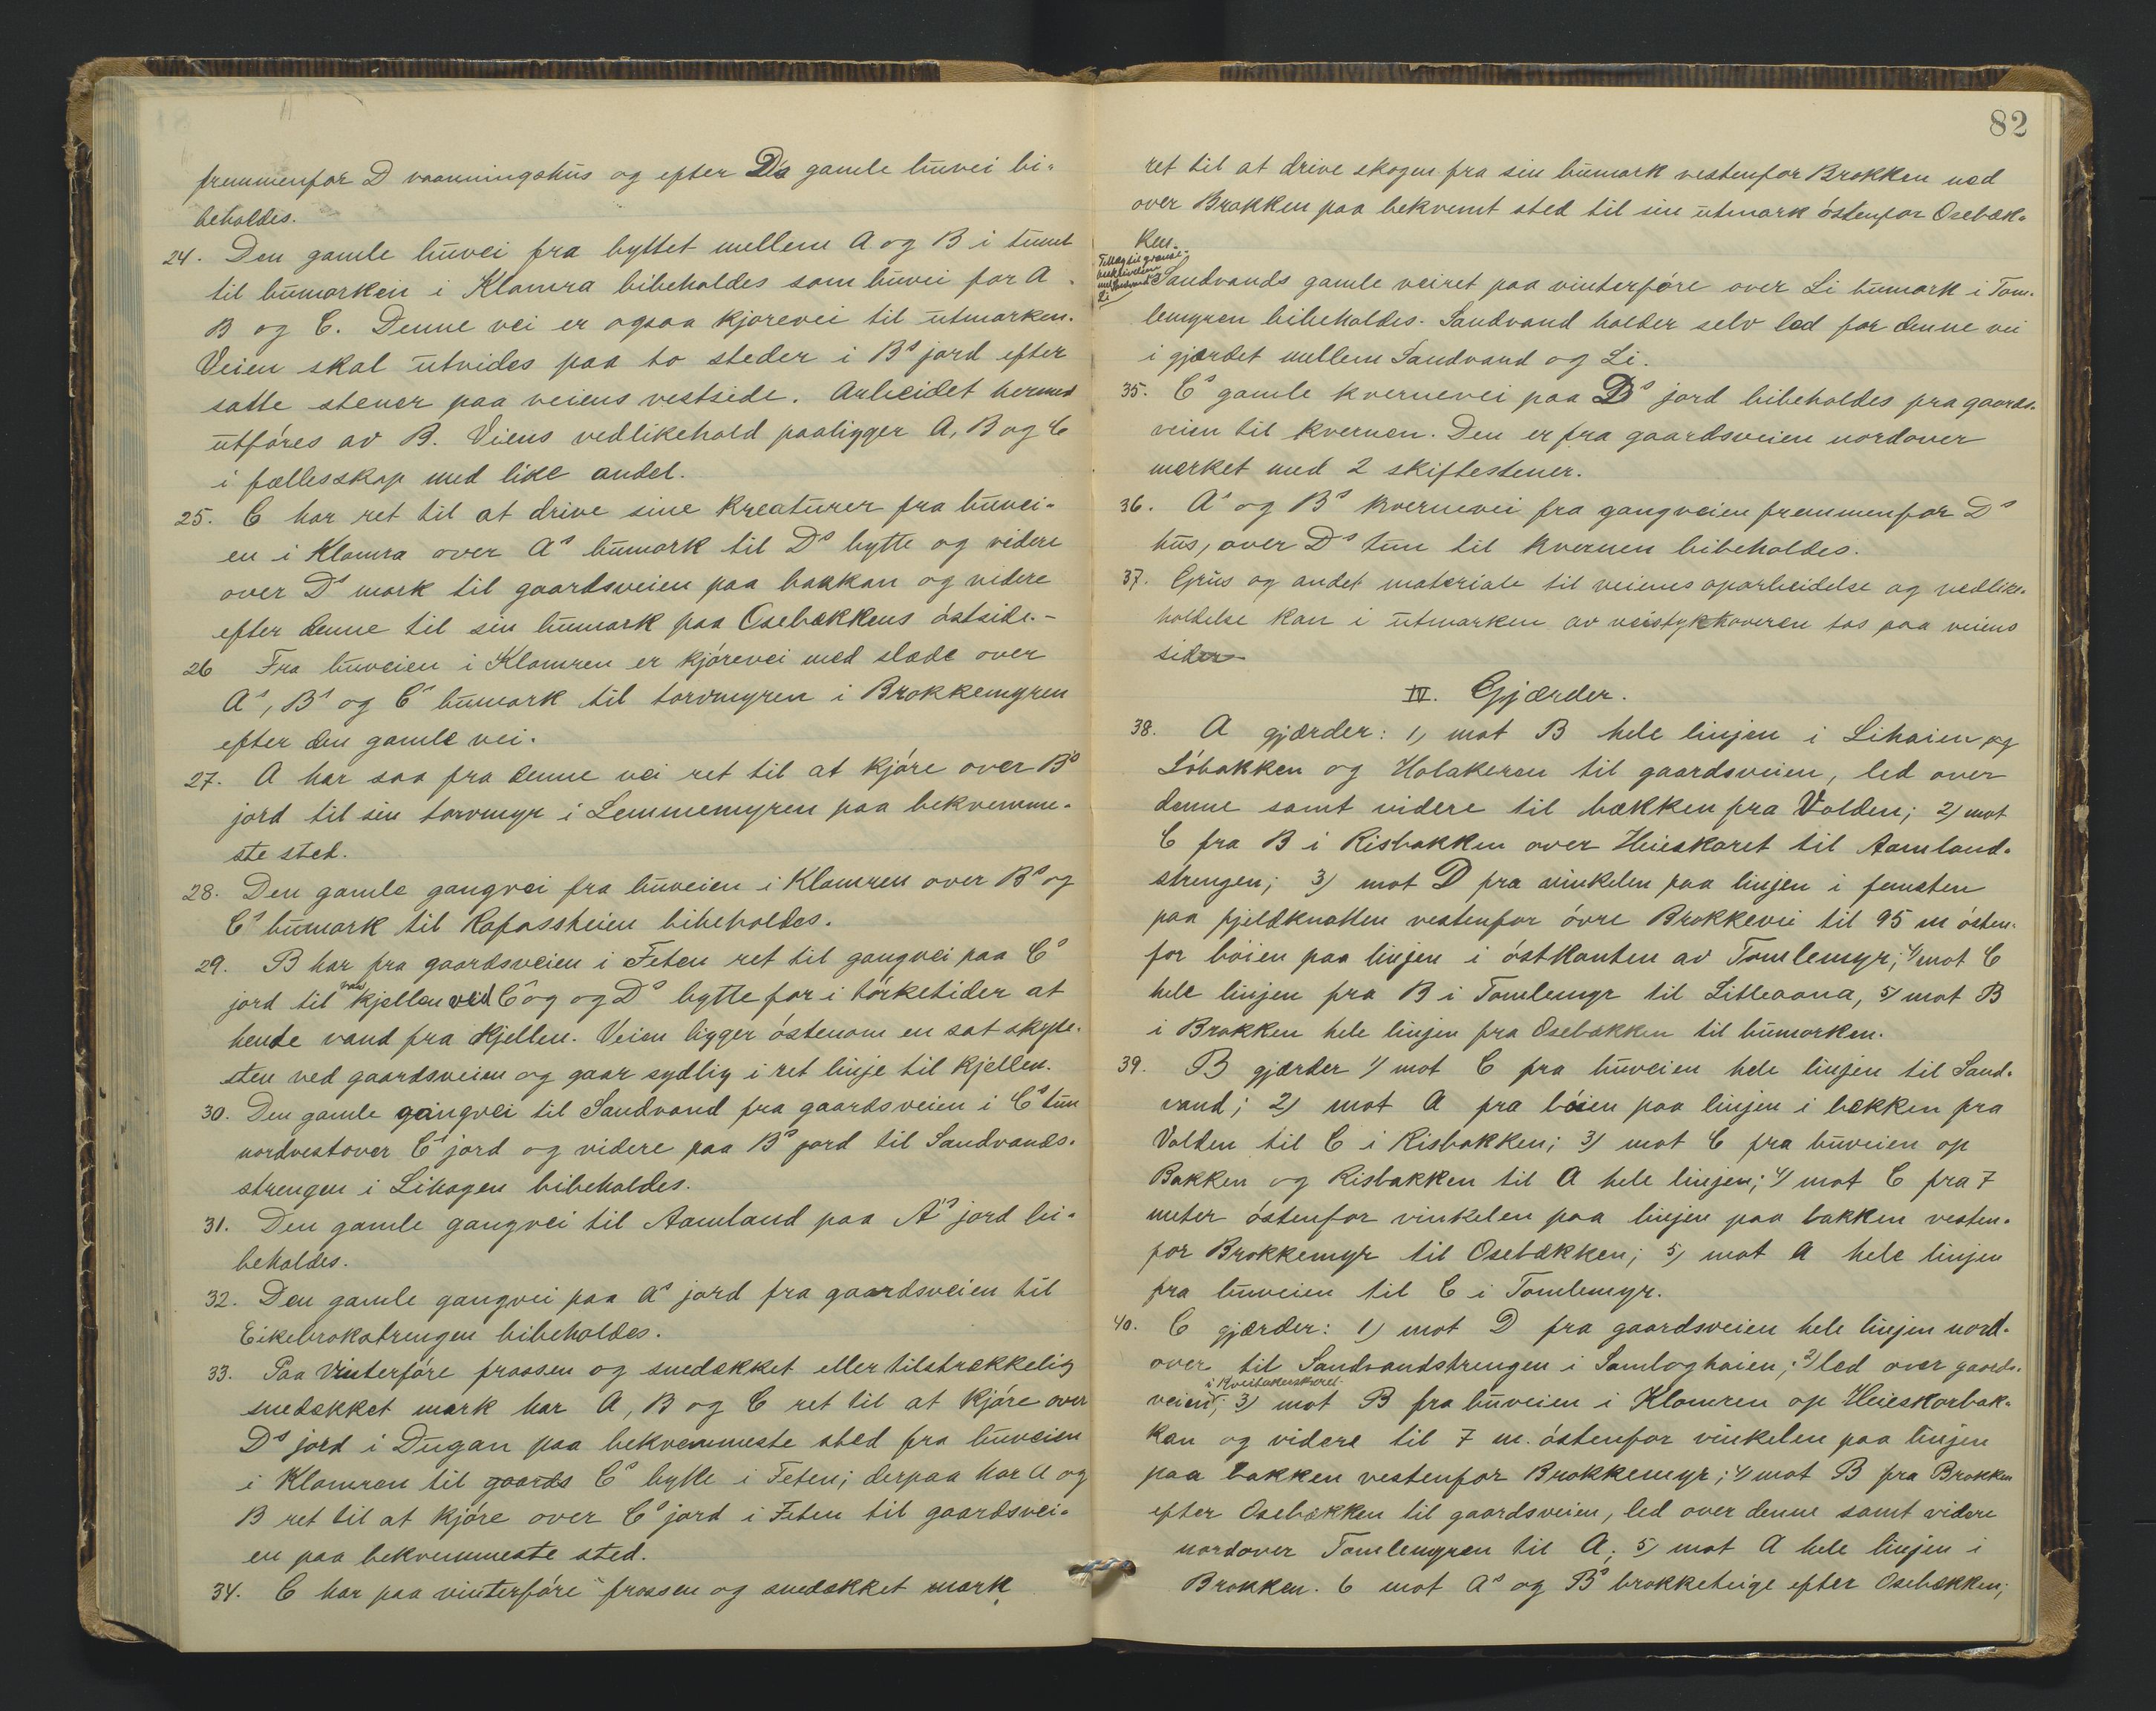 fremmenfor D vaaningshus og efter D's gamle buvei bi-
beholdes.
24. Den gamle buvei fra byttet mellem A og B i tunet
til bumarken i Klomra bibeholdes som buvei for A.
B og C. Denne vei er ogsaa kjørevei til utmarken.
Veien skal utvides paa to steder i Bs jord efter
satte stener paa veiens vestside. Arbeidet hermed
utføres av B. Veiens vedlikehold paaligger A, B og C
i fællesskap med like andel.
25. C har ret til at drive sine kreaturer fra buvei-
en i Klomra over As bumark til Ds bytte og videre
over Ds mark til gaardsveien paa bakkan og videre
efter denne til sin bumark paa Osebækkens østside.-
26 Fra buveien i Klomren er kjørevei med slæde over
As, Bs og Cs bumark til torvmyren i Brokkemyren
efter den gamle vei.
27. A har saa fra denne vei ret til at kjøre over Bs
jord til sin torvmyr i Lemmemyren paa bekvemme-
ste sted.
28. Den gamle gangvei fra buveien i Klomren over Bs og
Cs bumark til Rafossheien bibeholdes.
29. B har fra gaardsveien i Feten ret til gangvei paa Cs
jord til kjellen ved Cs og og Ds bytte for i tørketider at
hente vand fra kjellen. Veien ligger østenom en sat skifte-
sten ved gaardsveien og gaar sydlig i ret linje til kjellen.
30. Den gamle gangvei til Sandvand fra gaardsveien i Cs tun
nordvestover Cs jord og videre paa Bs jord til Sandvands-
strengen i Lihagen bibeholdes.
31. Den gamle gangvei til Aamland paa A's jord bi-
beholdes.
32. Den gamle gangvei paa As jord fra gaardsveien til
Eikebrokstrengen bibeholdes.
33. Paa vinterføre frossen og snedækket eller tilstrækkelig
snedækket mark har A, B og C ret til at kjøre over
Ds jord i Dugan paa bekvemmeste sted fra buveien
i Klomren til gaards Cs bytte i Feten; derpaa har A og
B ret til at kjøre over Cs jord i Feten til gaardsvei-
en paa bekvemmeste sted.
34. C har paa vinterføre frossen og snedækket mark
82
ret til at drive skogen fra sin bumark vestenfor Brokken ned
over Brokken paa bekvemt sted til sin utmark østenfor Osebæk-
ken.
Tillæg til grænse-
Li
Sandvands gamle veiret paa vinterføre over Li bumark i Tom-
lemyren bibeholdes. Sandvand holder selv led for denne vei
i gjærdet mellem Sandvand og Li.
35. Cs gamle kvernevei paa Bs jord bibeholdes fra gaards-
veien til kvernen. Den er fra gaardsveien nordover
merket med 2 skiftestener.
36. As og Bs kvernevei fra gangveien fremmenfor Ds
hus, over Ds tun til kvernen bibeholdes.
37. Grus og andet materiale til veienes oparbeidelse og vedlike-
holdelse kan i utmarken av veistykkeeieren tas paa veiens
sider
IV. Gjærder.
38. A gjærder: 1) mot B hele linjen i Lihaien og
Løbakken og Holakeren til gaardsveien, led over
denne samt videre til bækken fra Volden; 2) mot
C fra B i Risbakken over Heieskaret til Aamland-
strengen; 3) mot D fra vinkelen paa linjen i
paa fjeldknatten vestenfor øvre Brokkevei til 95 m østen-
for bøien paa linjen i østkanten av Tomlemyr; 4) mot C
hele linjen fra B i Tomlemyr til Litleaana, 5) mot B
i Brokken hele linjen fra Osebækken til bumarken.
39. B gjærder 1) mot C fra buveien hele linjen til Sand-
vand; 2) mot A fra bøien paa linjen i bækken fra
Volden til C i Risbakken; 3) mot C fra buveien op
Bakken og Risbakken til A hele linjen; 4) mot C fra 7
meter østenfor vinkelen paa linjen paa bakken vesten-
for Brokkemyr til Osebækken; 5) mot A hele linjen
fra buveien til C i Tomlemyr.
40. C gjærder: 1) mot D fra gaardsveien hele linjen nord-
over til Sandvandstrengen i Samloghaien; 2) led over gaards-
veien i Kveitakerskaret; 3) mot B fra buveien i Klomren op Heieskarbak-
kan og videre til 7 m. østenfor vinkelen paa linjen
paa bakken vestenfor Brokkemyr; 4) mot B fra Brokken
efter Osebækken til gaardsveien, led over denne samt videre
nordover Tomlemyren til A; 5) mot A hele linjen i
Brokken. 6 mot As og Bs brokketeige efter Osebækken;